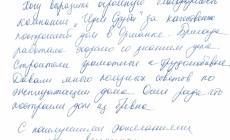 Хочу выразить огромную благодарность
компании "Идеи Судьбы" за качественно
построенный дом в Гришанке. Бригада
работала хорошо со знанием дела.
Строители грамотные и трудолюбивые.
Давали много полезных советов по
эксплуатации дома. Очень рада что
построила дом из бревна.
С наилучшими пожеланиями